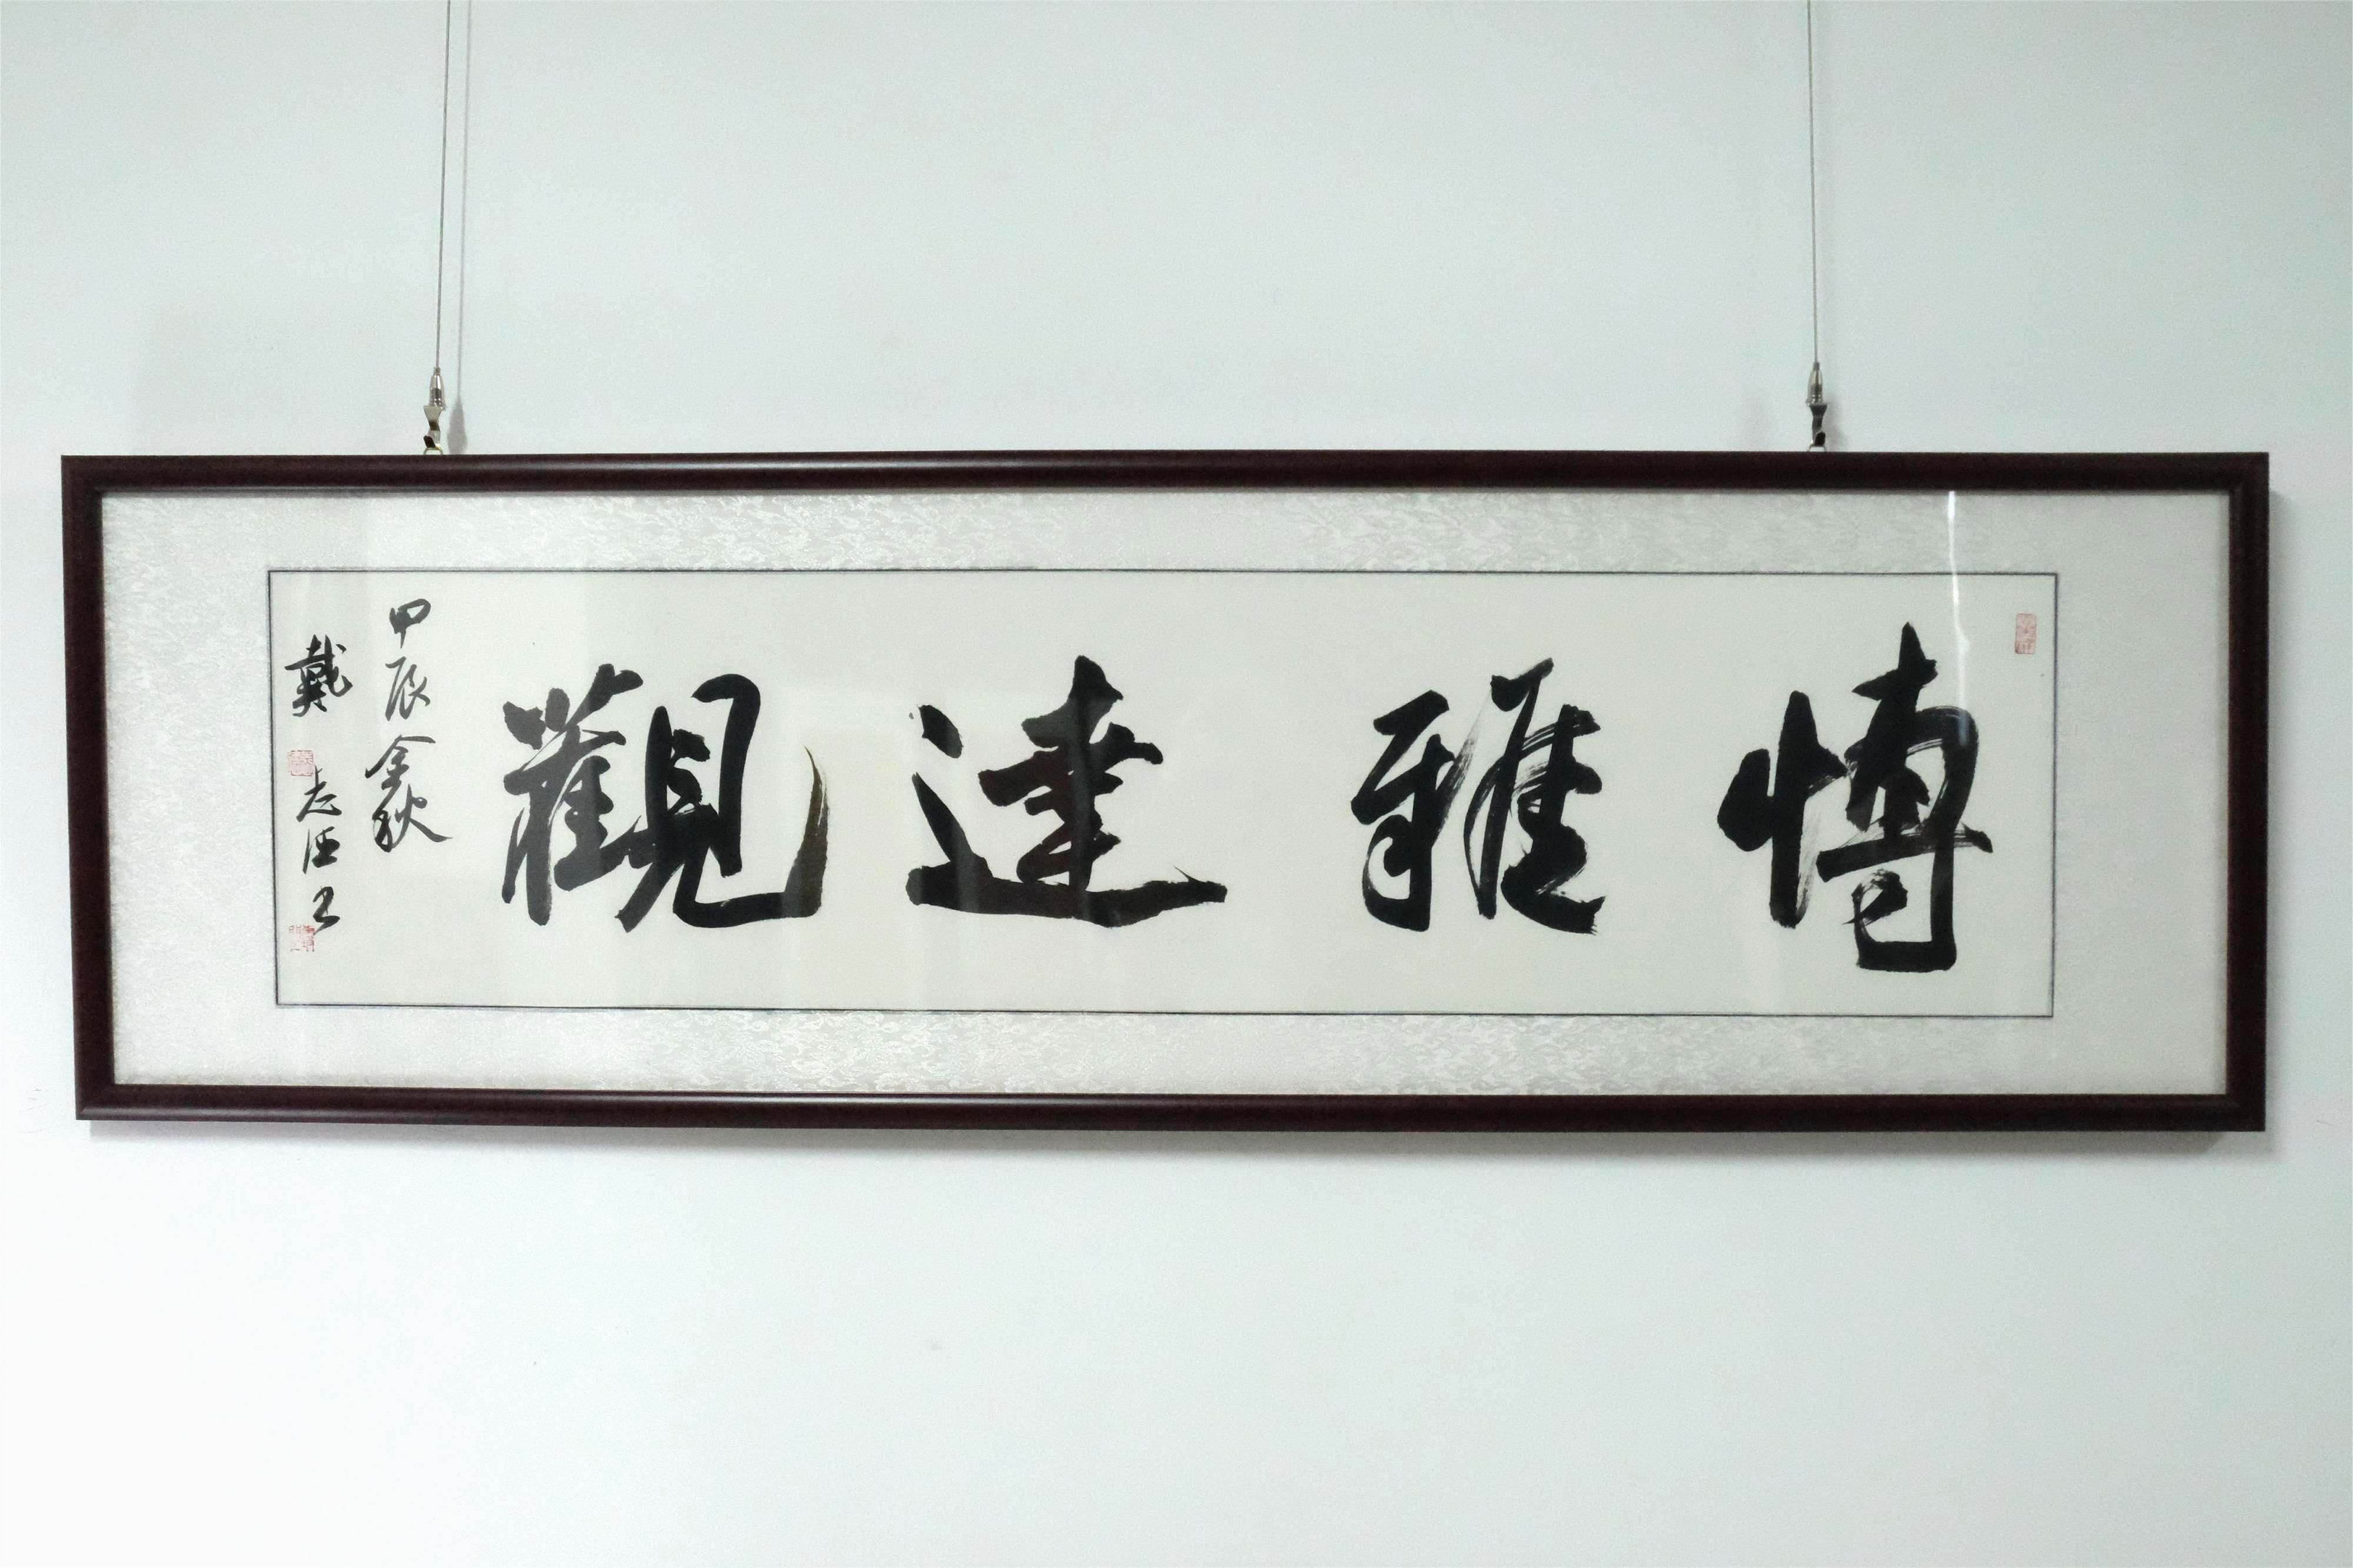 博雅達觀
甲辰金秋
戴志恒書